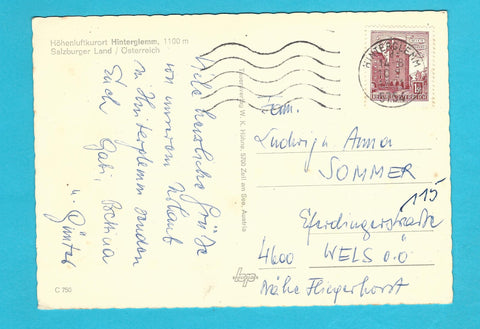 Höhenluftkurort Hinterglemm, 1100 m
Salzburger Land / Österreich
Viele herzliche Grüße
von unserem Urlaub
in Hinterglemm senden
Euch Gabi, Bettina
u. Günter
C 750
W. K. Hübne, 5700 Zell am See, Austria
HINTERGLEMM
REPUBLIK ÖSTERREICH
Fam.
Ludwig u. Anna
SOMMER
Eferdingerstraße 115
4600 WELS O.Ö
Nähe Fliegerhorst